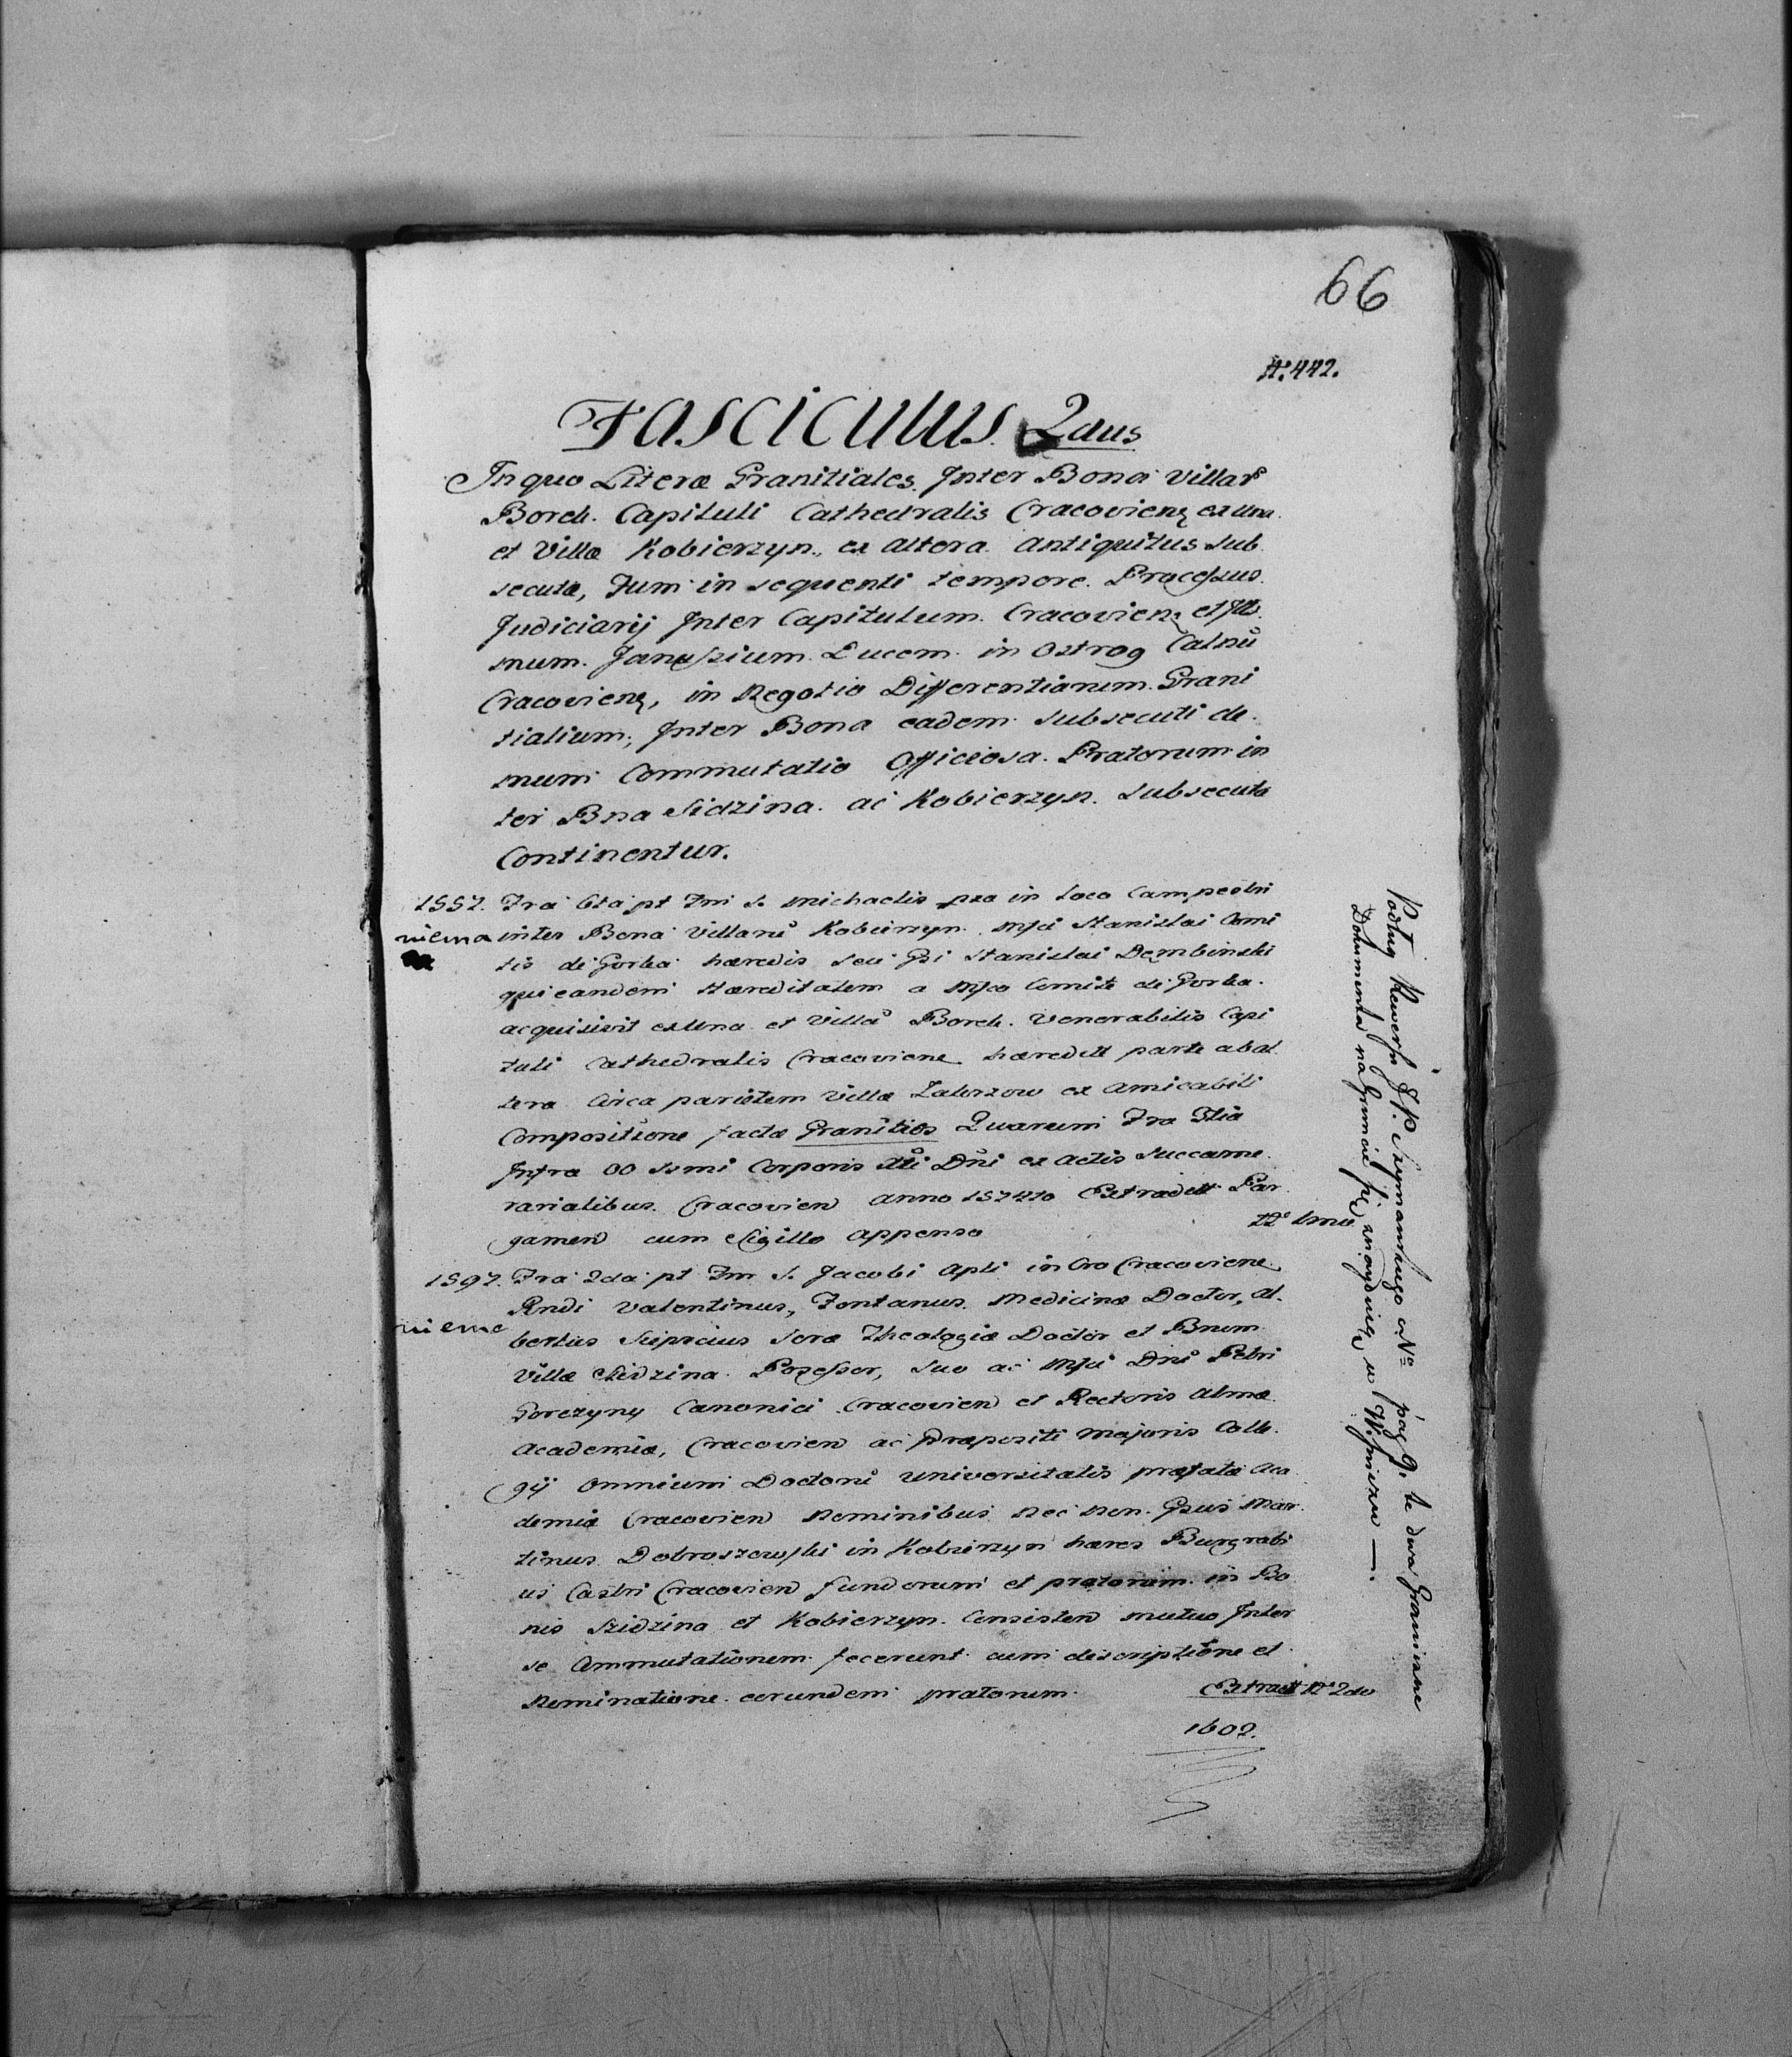 66
N. 442.
Fasciculus 2dus
In quo Literæ Granitiales Inter Bona Villar
Borek Capituli Cathedralis Cracovien ex una
et Villæ Kobierzyn, ex altera antiquitus sub
secutæ, Tum in sequenti tempore Processus
Judiciarij Inter Capitulum Cracovien et Ill
mum Janussium Ducem in Ostrog Calnũ
Cracovien, in Negotio Differentiarum Grani
tialium, Inter Bona eadem subsecuti de
mum Commutatio Officiosa Pratorum in
ter Bna Sidzina ac Kobierzyn subsecuta
Continentur.
1557. Fra 6ta pt Fm S. Michaelis pza in Loco Campestri
niema inter Bona Villarũ Kobierzyn Mfci Stanislai Comi
tis de Gorka hæredis seu Gsi Stanislai Dembinski
qui eandem Hæreditatem a Mfco Comite de Gorka
acquisivit ex una et Villã Borek Venerabilis Capi
tuli Cathedralis Cracovien hæredit parte ab al
tera Circa parietem Villæ Zalerzow ex Amicabili
Compositione factæ Granities Quarum Fra 3tia
Infra 00 Ssmi Corporis Xti Dñi ex Actis Succame
rarialibus Cracovien anno 1574to Extradett Par
gamen cum Sigillo appenso
N° 1mo
1597. Fra 2da pt Fm S. Jacobi Apli in Cro Cracovien
Rndi Valentinus, Fontanus Medicinæ Doctor, Al
niema bertus Sepricius Soræ Theologiæ Doctor et Bnorum
Villæ Sidzina Possessor, suo ac Mfci Dni Petri
Gorczyny Canonici Cracovien et Rectoris almæ
Academiæ, Cracovien ac Præpositi Majoris Colle
gij omnium Doctorũ Universitatis præfatæ Aca
demiæ Cracovien Nominibus nec non Gsus Mar
tinus Dobroszowski in Kobierzyn hæres Burgrabi
us Castri Cracovien fundorum et pratorum in Bo
nis Szidzina et Kobierzyn Consisten mutuo Inter
se Commutationem fecerunt cum descriptione et
Nominatione eorundem pratorum
Extract N° 2do
1602.
Podług Rewersu J.P. Szymanskiego N° pag 9. te dwa Graniczne
Dokumenta na Gruncie się znayduią u W.